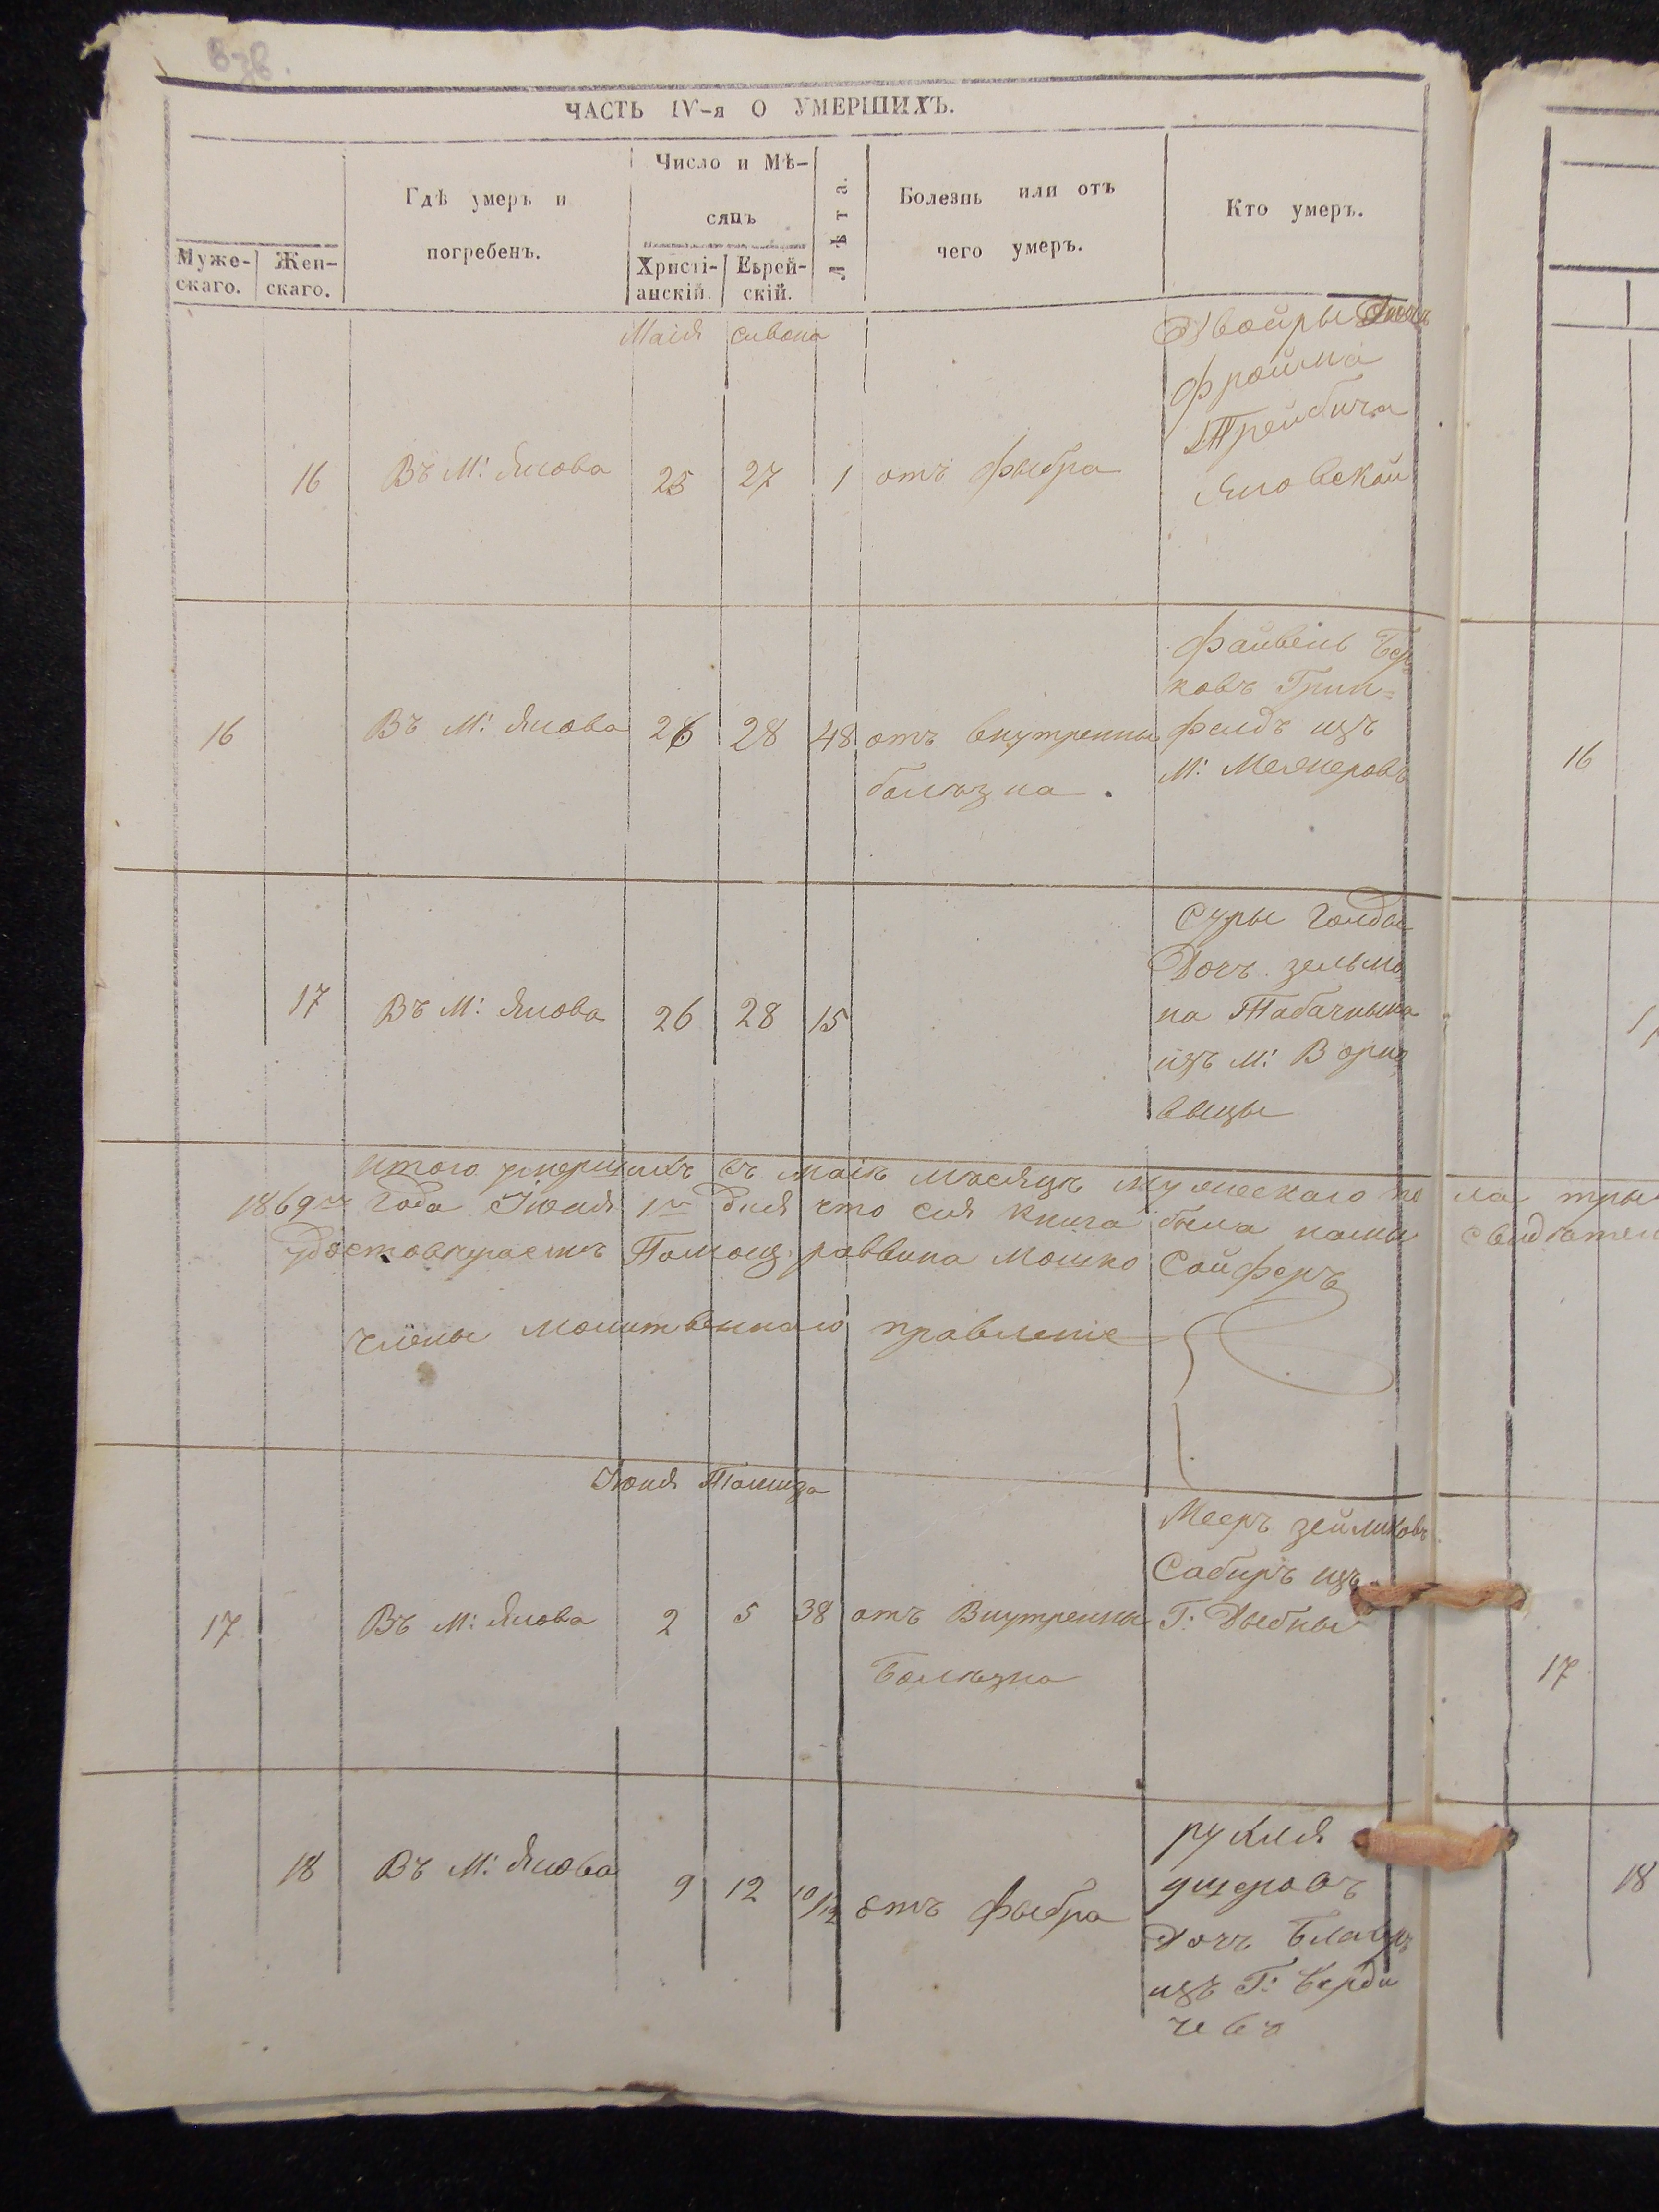 ЧАСТЬ IV-я О УМЕРШИХЪ.
Муже-скаго.
Жен-скаго.
Гдѣ умеръ и
погребенъ.
Число и Мѣ-
сяцъ
Христі-анскій.
Еврей-скій.
Лѣта.
Болезнь или отъ
чего умеръ.
Кто умеръ.
Маія Сивона
16 Въ М: Янова 25 27 1 отъ фыбра
Двойры Дочъ
Фройма
Трейбича
Яновской
16 Въ М: Янова 26 28 48 отъ внутренны
болѣзна.
Файвель Бер=
ковъ Грин=
фелдъ изъ
М:
17 Въ М: Янова 26 28 15
Суры Голды
Дочъ зельма
на Табачныка
изъ М:
итого умершихъ въ маіѣ мѣсяцѣ мужескаго по ла тры
1869го Года Іюня 1го дня что сия книга была нами свидѣтел
удостовѣраемъ Помощ: раввина Мошко Сойферъ
члены молитвеннаго правленіе
Іюня Тамиза
17 Въ М: Янова 2 5 38 отъ Внутренны
Болѣзна
Мееръ зейликовъ
Сабиръ изъ
Г: Дыбны
18 Въ М: Янова 9 12 10/12 отъ фыбра
рухля
Дочъ
изъ Г: Берди
чевъ
16
17
18